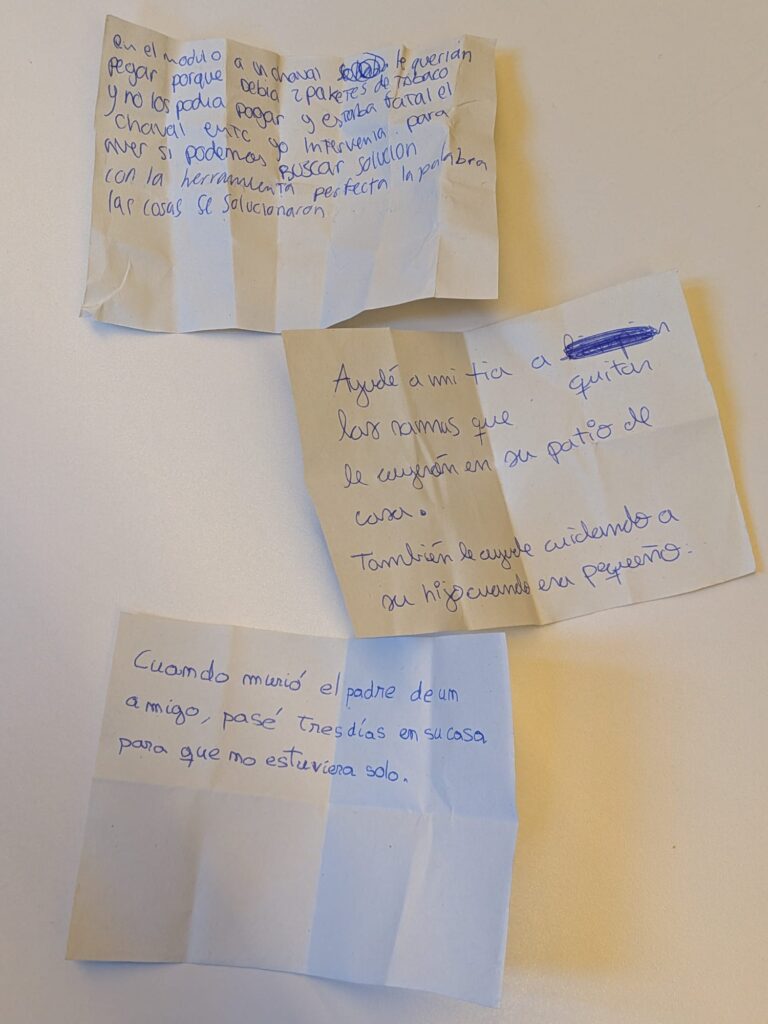 en el modulo a un chaval le querian
pegar porque debia 2 paketes de tobaco
y no los podia pagar y estaba fatal el
chaval entc yo intervenia para
aver si podemos buscar solucion
con la herramienta perfecta la palabra
las cosas se solucionaron
Ayudé a mi tia a
quitar
las ramas que
le cayerón en su patio de
casa.
También le ayude cuidando a
su hijo cuando era pequeño.
Cuando murió el padre de un
amigo, pasé tres días en su casa
para que no estuviera solo.